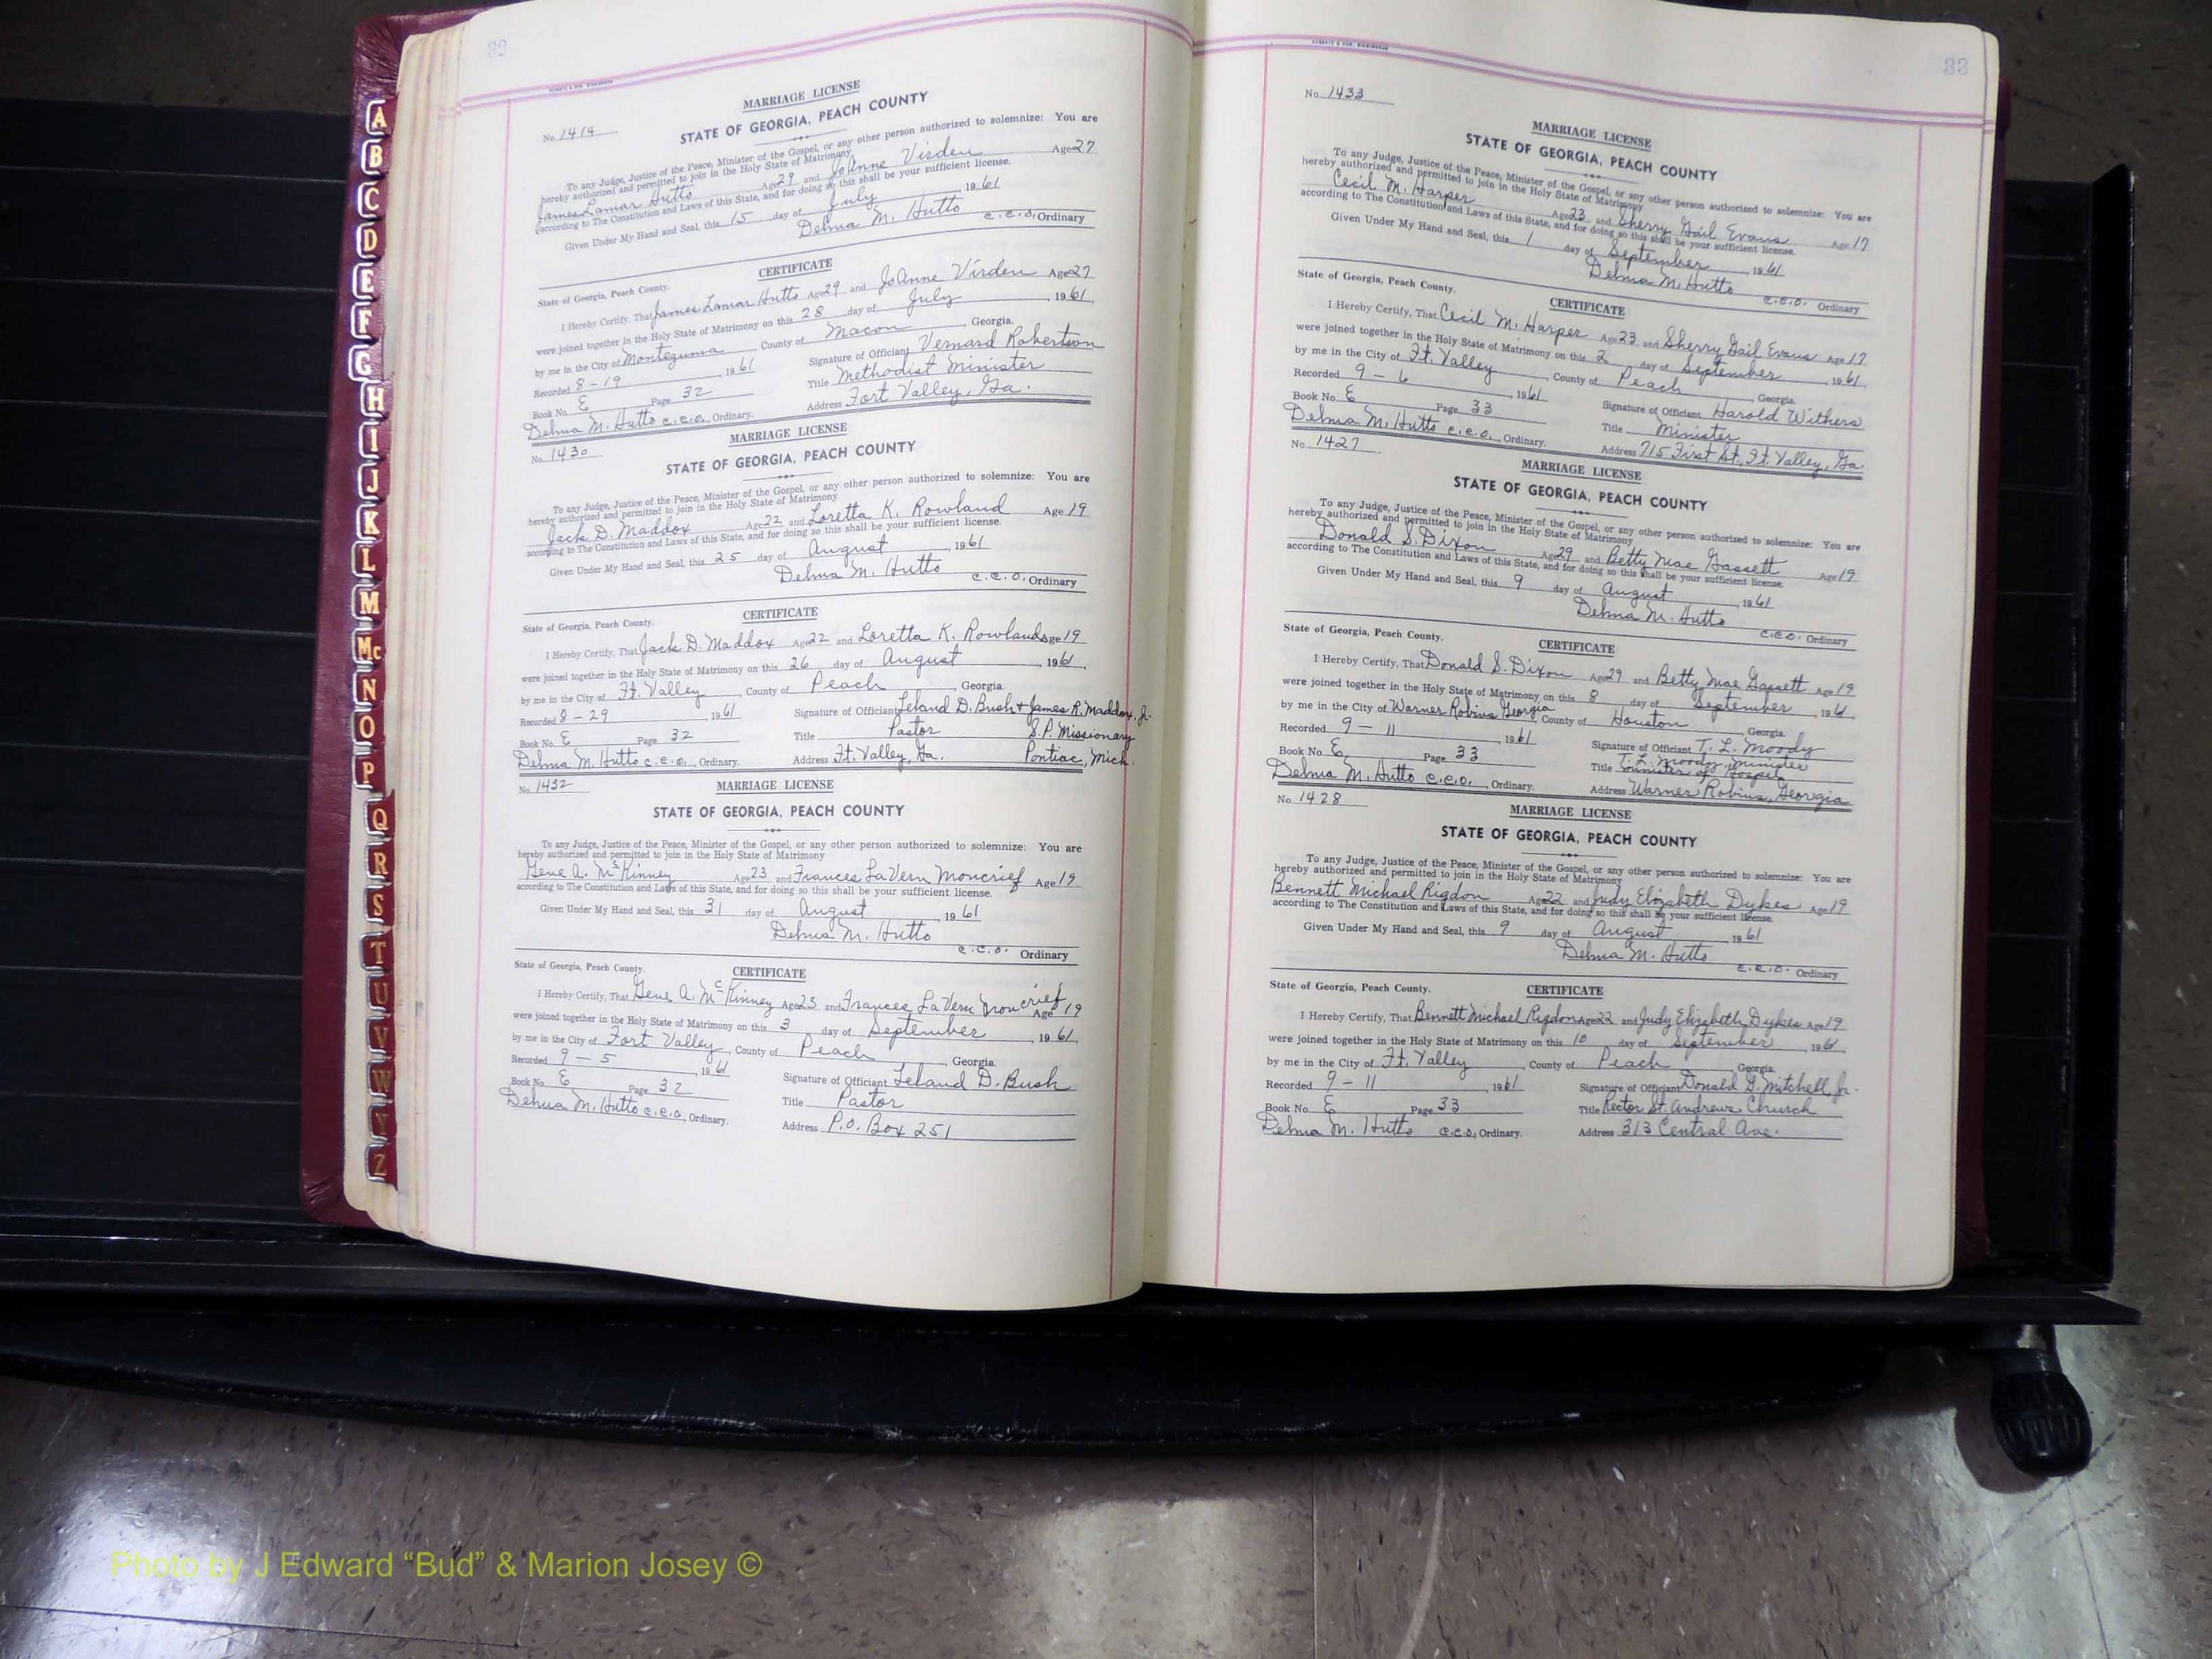 32
MARRIAGE LICENSE
No. 1414
STATE OF GEORGIA, PEACH COUNTY
To any Judge, Justice of the Peace, Minister of the Gospel, or any other person authorized to solemnize: You are
hereby authorized and permitted to join in the Holy State of Matrimony
James Lamar Hutto Age 29 and JoAnne Virden Age 27
according to The Constitution and Laws of this State, and for doing so this shall be your sufficient license.
Given Under My Hand and Seal, this 15 day of July, 1961
Delma M. Hutto C.C.O. Ordinary
CERTIFICATE
State of Georgia, Peach County.
I Hereby Certify, That James Lamar Hutto Age 29 and JoAnne Virden Age 27
were joined together in the Holy State of Matrimony on this 28 day of July, 1961,
by me in the City of Montezuma County of Macon, Georgia.
Recorded 8-19, 1961 Signature of Officiant Vernard Robertson
Book No. E Page 32 Title Methodist Minister
Delma M. Hutto C.C.O., Ordinary. Address Fort Valley, Ga.
MARRIAGE LICENSE
No. 1430
STATE OF GEORGIA, PEACH COUNTY
To any Judge, Justice of the Peace, Minister of the Gospel, or any other person authorized to solemnize: You are
hereby authorized and permitted to join in the Holy State of Matrimony
Jack D. Maddox Age 22 and Loretta K. Rowland Age 19
according to The Constitution and Laws of this State, and for doing so this shall be your sufficient license.
Given Under My Hand and Seal, this 25 day of August, 1961
Delma M. Hutto C.C.O. Ordinary
CERTIFICATE
State of Georgia, Peach County.
I Hereby Certify, That Jack D. Maddox Age 22 and Loretta K. Rowland Age 19
were joined together in the Holy State of Matrimony on this 26 day of August, 1961
by me in the City of Ft. Valley, County of Peach, Georgia.
Recorded 8-29, 1961 Signature of Officiant Leland D. Bush + James R. Maddox, Jr.
Book No. E Page 32 Title Pastor S.P. Missionary
Delma M. Hutto C.C.O., Ordinary. Address Ft. Valley, Ga. Pontiac, Mich.
No. 1432 MARRIAGE LICENSE
STATE OF GEORGIA, PEACH COUNTY
To any Judge, Justice of the Peace, Minister of the Gospel, or any other person authorized to solemnize: You are
hereby authorized and permitted to join in the Holy State of Matrimony
Gene A. McKinney Age 23 and Frances LaVern Moncrief Age 19
according to The Constitution and Laws of this State, and for doing so this shall be your sufficient license.
Given Under My Hand and Seal, this 31 day of August, 1961
Delma M. Hutto C.C.O. Ordinary
State of Georgia, Peach County. CERTIFICATE
I Hereby Certify, That Gene A. McKinney Age 23 and Frances LaVern Moncrief Age 19
were joined together in the Holy State of Matrimony on this 3 day of September, 1961,
by me in the City of Fort Valley, County of Peach, Georgia.
Recorded 9-5, 1961 Signature of Officiant Leland D. Bush
Book No. E Page 32 Title Pastor
Delma M. Hutto C.C.O., Ordinary. Address P.O. Box 251
33
No. 1433
MARRIAGE LICENSE
STATE OF GEORGIA, PEACH COUNTY
To any Judge, Justice of the Peace, Minister of the Gospel, or any other person authorized to solemnize: You are
hereby authorized and permitted to join in the Holy State of Matrimony
Cecil M. Harper Age 23 and Sherry Gail Evans Age 17
according to The Constitution and Laws of this State, and for doing so this shall be your sufficient license.
Given Under My Hand and Seal, this 1 day of September, 1961
Delma M. Hutto C.C.O. Ordinary
State of Georgia, Peach County. CERTIFICATE
I Hereby Certify, That Cecil M. Harper Age 23 and Sherry Gail Evans Age 17
were joined together in the Holy State of Matrimony on this 2 day of September, 1961,
by me in the City of Ft. Valley, County of Peach, Georgia.
Recorded 9-6, 1961 Signature of Officiant Harold Withers
Book No. E Page 33 Title Minister
Delma M. Hutto C.C.O., Ordinary. Address 715 First St. Ft. Valley, Ga
No. 1427 MARRIAGE LICENSE
STATE OF GEORGIA, PEACH COUNTY
To any Judge, Justice of the Peace, Minister of the Gospel, or any other person authorized to solemnize: You are
hereby authorized and permitted to join in the Holy State of Matrimony
Donald S. Dixon Age 29 and Betty Mae Gassett Age 19
according to The Constitution and Laws of this State, and for doing so this shall be your sufficient license.
Given Under My Hand and Seal, this 9 day of August, 1961
Delma M. Hutto C.C.O. Ordinary
State of Georgia, Peach County. CERTIFICATE
I Hereby Certify, That Donald S. Dixon Age 29 and Betty Mae Gassett Age 19
were joined together in the Holy State of Matrimony on this 8 day of September, 1961
by me in the City of Warner Robins Georgia, County of Houston, Georgia.
Recorded 9-11, 1961 Signature of Officiant T. L. Moody
T. L. Moody, Minister
Book No. E Page 33 Title Minister of Gospel
Delma M. Hutto C.C.O., Ordinary. Address Warner Robins, Georgia
No. 1428 MARRIAGE LICENSE
STATE OF GEORGIA, PEACH COUNTY
To any Judge, Justice of the Peace, Minister of the Gospel, or any other person authorized to solemnize: You are
hereby authorized and permitted to join in the Holy State of Matrimony
Bennett Michael Rigdon Age 22 and Judy Elizabeth Dykes Age 19
according to The Constitution and Laws of this State, and for doing so this shall be your sufficient license.
Given Under My Hand and Seal, this 9 day of August, 1961
Delma M. Hutto C.C.O. Ordinary
State of Georgia, Peach County. CERTIFICATE
I Hereby Certify, That Bennett Michael Rigdon Age 22 and Judy Elizabeth Dykes Age 19
were joined together in the Holy State of Matrimony on this 10 day of September, 1961
by me in the City of Ft. Valley, County of Peach, Georgia.
Recorded 9-11, 1961 Signature of Officiant Donald G. Mitchell, Jr.
Book No. E Page 33 Title Rector St. Andrews Church
Delma M. Hutto C.C.O., Ordinary. Address 313 Central Ave.
A
B
C
D
E
F
G
H
I
J
K
L
M
Mc
N
O
P
Q
R
S
T
U
V
W
Y
Z
Photo by J Edward “Bud” & Marion Josey ©